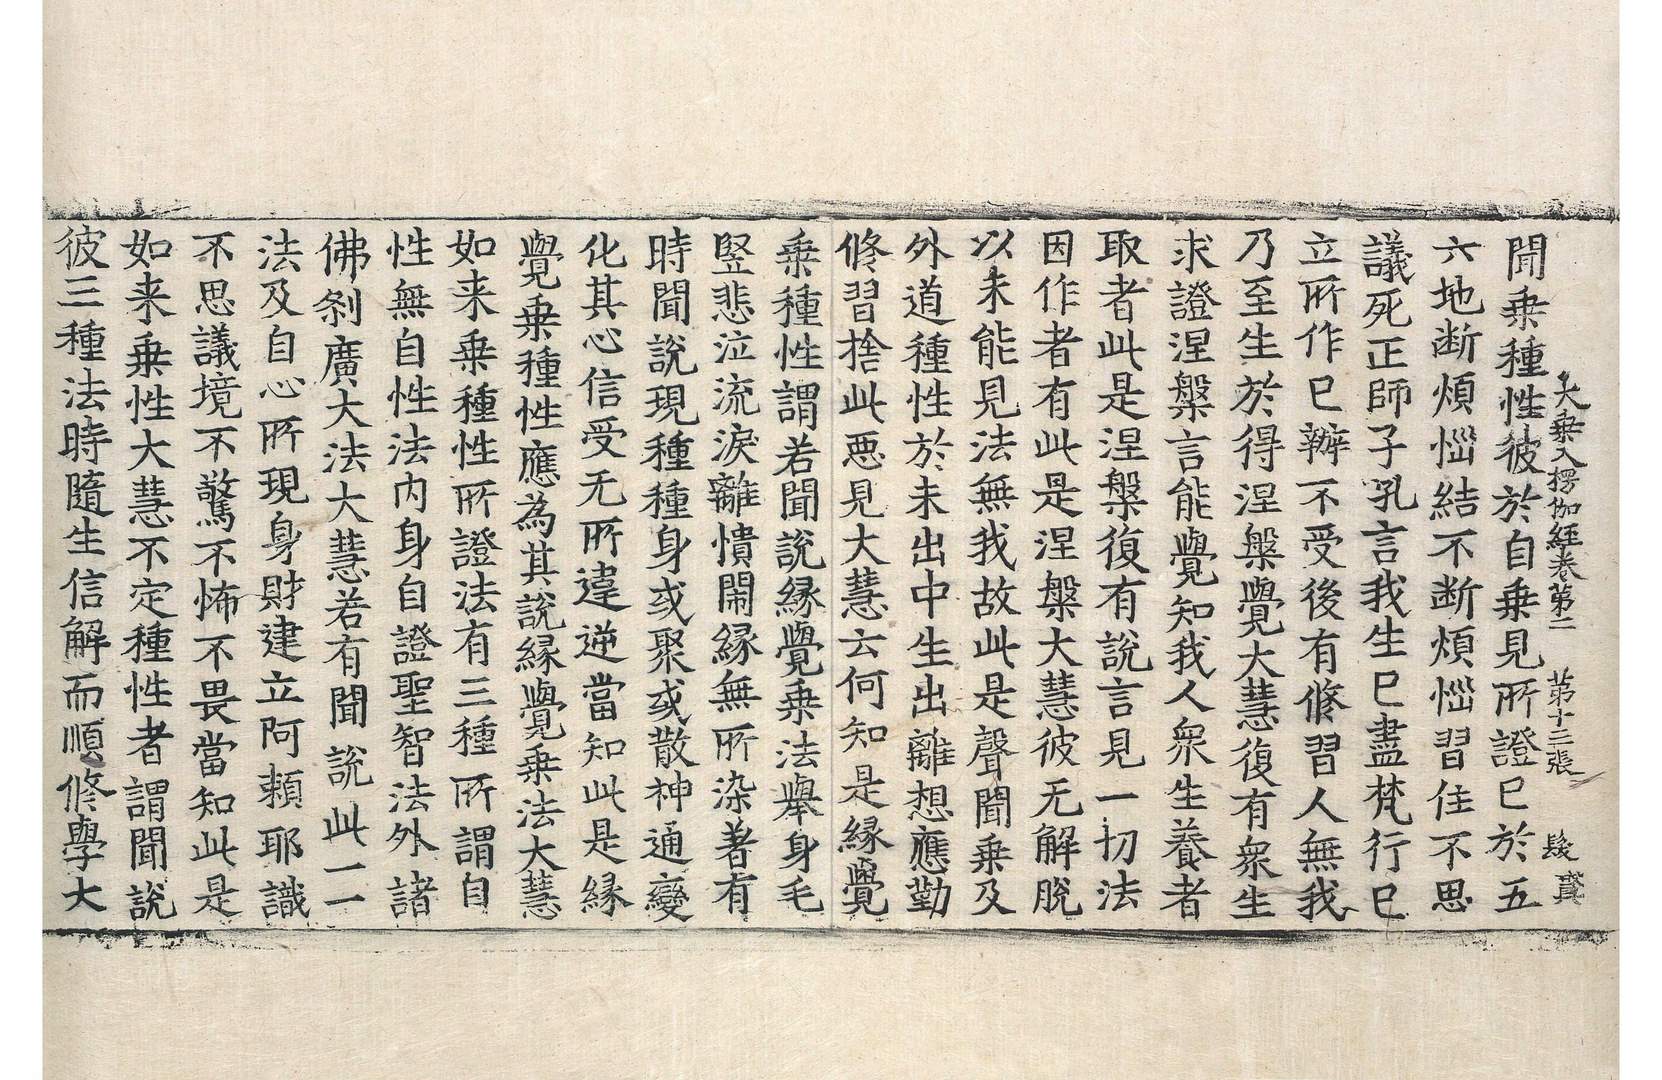 大乘入楞伽經卷第二 第十三張 髮
聞乗種性彼於自乗見所證已於五
六地断煩惱結不断煩惱習住不思
議死正師子吼言我生已盡梵行已
立所作已辦不受後有修習人無我
乃至生於得涅槃覺大慧復有衆生
求證涅槃言能覺知我人衆生養者
取者此是涅槃復有說言見一切法
因作者有此是涅槃大慧彼无解脫
以未能見法無我故此是聲聞乗及
外道種性於未出中生出離想應勤
修習捨此惡見大慧云何知是緣覺
乗種性謂若聞說緣覺乗法舉身毛
竪悲泣流淚離憒閙緣無所染著有
時聞說現種種身或聚或散神通變
化其心信受无所違逆當知此是緣
覺乗種性應為其說緣覺乗法大慧
如来乗種性所證法有三種所謂自
性無自性法內身自證聖智法外諸
佛刹廣大法大慧若有聞說此一一
法及自心所現身財建立阿頼耶識
不思議境不驚不怖不畏當知此是
如来乗性大慧不定種性者謂聞說
彼三種法時隨生信解而順修學大